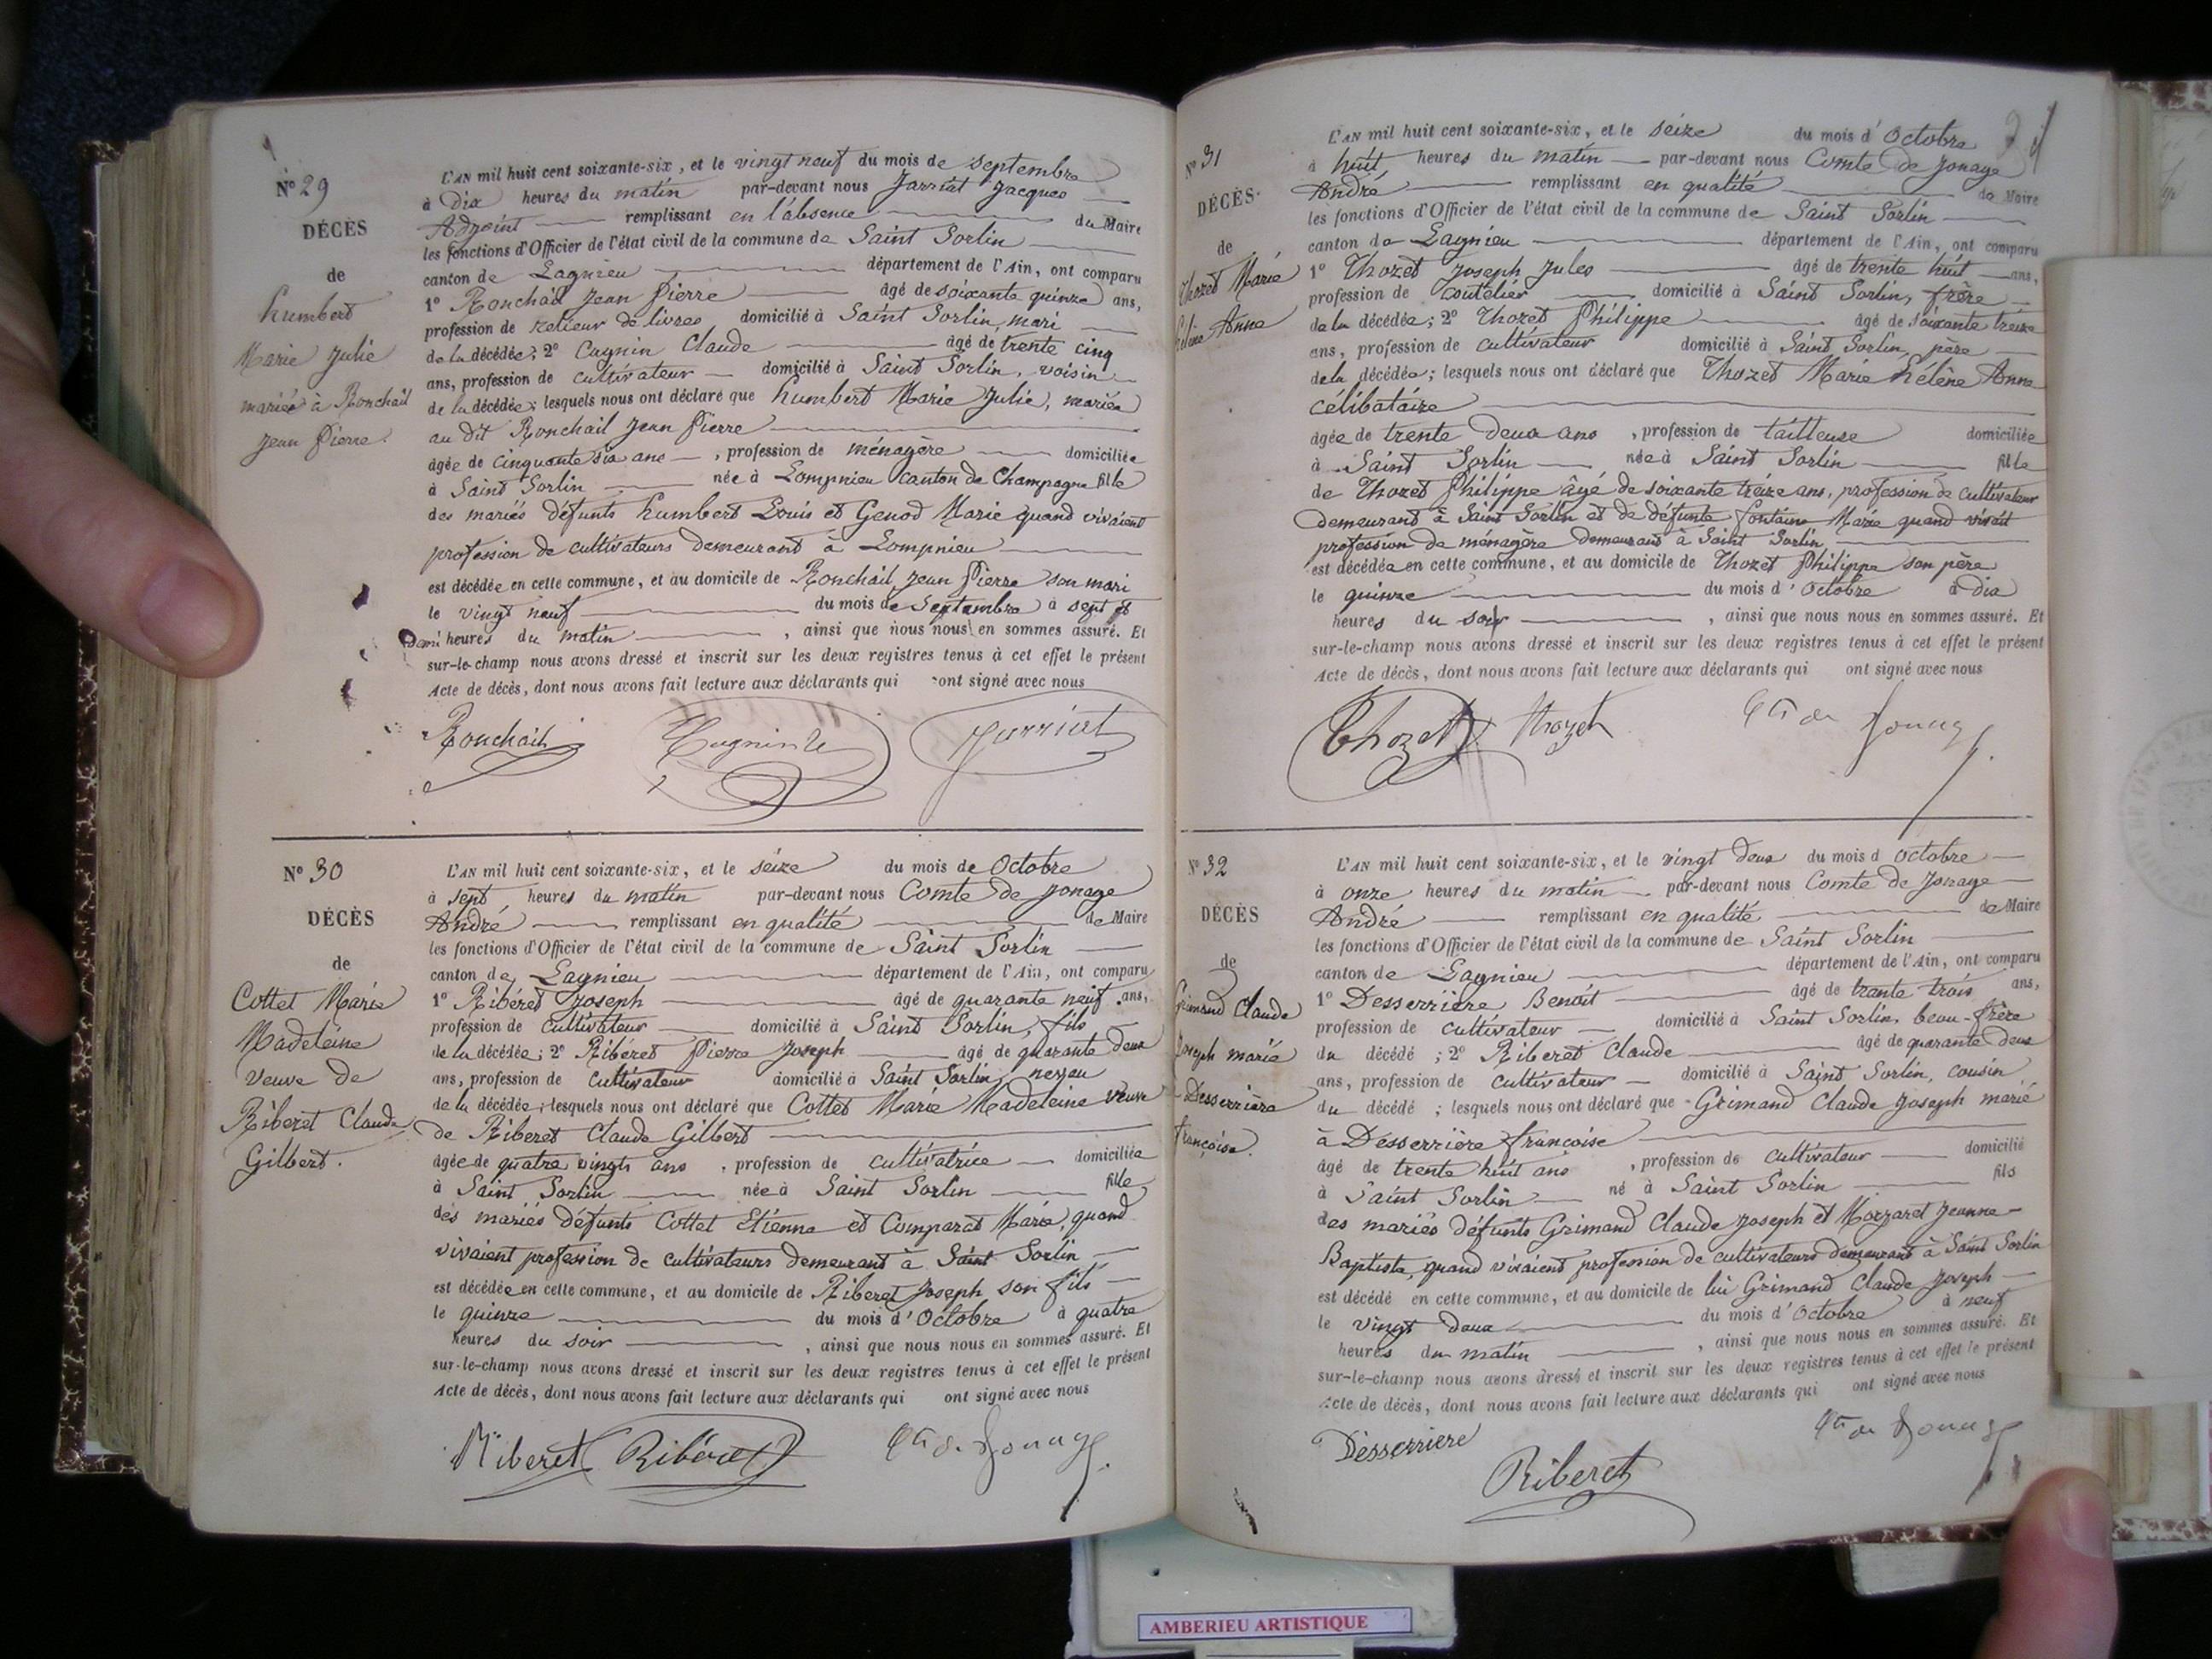 N° 29
DÉCÈS
de
humbert
Marie Julie
mariée à Ronchail
Jean Pierre.
L'AN mil huit cent soixante-six, et le vingt neuf du mois de septembre
à dix heures du matin par-devant nous Jarriat Jacques
Adjoint remplissant en l'absence du Maire
les fonctions d'Officier de l'état civil de la commune de Saint Sorlin
canton de Lagnieu département de l'Ain, ont comparu
1° Ronchail Jean Pierre âgé de soixante quinze ans,
profession de relieur de livres domicilié à Saint Sorlin, mari
de la décédée; 2° Cugnin Claude âgé de trente cinq
ans, profession de cultivateur domicilié à Saint Sorlin, voisin
de la décédée; lesquels nous ont déclaré que humbert Marie Julie, mariée
au dit Ronchail Jean Pierre
âgée de cinquante six ans, profession de ménagère domiciliée
à Saint Sorlin née à Lompnieu canton de Champagne fille
des mariés défunts humbert Louis et Genod Marie quand vivaient
profession de cultivateurs demeurant à Lompnieu
est décédée en cette commune, et au domicile de Ronchail Jean Pierre son mari
le vingt neuf du mois de Septembre à sept et
demi heures du matin, ainsi que nous nous en sommes assuré. Et
sur-le-champ nous avons dressé et inscrit sur les deux registres tenus à cet effet le présent
Acte de décès, dont nous avons fait lecture aux déclarants qui ont signé avec nous
Ronchail Jarriat
N° 30
DÉCÈS
de
Cottet Marie
Madeleine
veuve de
Riberet Claude
Gilbert.
L'AN mil huit cent soixante-six, et le seize du mois de Octobre
à sept heures du matin par-devant nous Comte de Jonage
André remplissant en qualité de Maire
les fonctions d'Officier de l'état civil de la commune de Saint Sorlin
canton de Lagnieu département de l'Ain, ont comparu
1° Ribéret Joseph âgé de quarante neuf ans,
profession de cultivateur domicilié à Saint Sorlin, fils
de la décédée; 2° Ribéret Pierre Joseph âgé de quarante deux
ans, profession de cultivateur domicilié à Saint Sorlin, neveu
de la décédée; lesquels nous ont déclaré que Cottet Marie Madeleine veuve
de Riberet Claude Gilbert
âgée de quatre vingts ans, profession de cultivatrice domiciliée
à Saint Sorlin née à Saint Sorlin fille
des mariés défunts Cottet Etienne et Comparat Marie, quand
vivaient profession de cultivateurs demeurant à Saint Sorlin
est décédée en cette commune, et au domicile de Riberet Joseph son fils
le quinze du mois d'Octobre à quatre
heures du soir, ainsi que nous nous en sommes assuré. Et
sur-le-champ nous avons dressé et inscrit sur les deux registres tenus à cet effet le présent
Acte de décès, dont nous avons fait lecture aux déclarants qui ont signé avec nous
Riberet Ribéret Cte de Jonage
N° 31
DÉCÈS
de
Thozet Marie
hélène Anne
L'AN mil huit cent soixante-six, et le seize du mois d'Octobre
à huit heures du matin par-devant nous Comte de Jonage
André remplissant en qualité de Maire
les fonctions d'Officier de l'état civil de la commune de Saint Sorlin
canton de Lagnieu département de l'Ain, ont comparu
1° Thozet Joseph Jules âgé de trente huit ans,
profession de coutelier domicilié à Saint Sorlin, frère
de la décédée; 2° Thozet Philippe âgé de soixante treize
ans, profession de cultivateur domicilié à Saint Sorlin, père
de la décédée; lesquels nous ont déclaré que Thozet Marie hélène Anne
célibataire
âgée de trente deux ans, profession de tailleuse domiciliée
à Saint Sorlin née à Saint Sorlin fille
de Thozet Philippe âgé de soixante treize ans, profession de cultivateur
demeurant à Saint Sorlin et de défunte fontaine Marie quand vivait
profession de ménagère demeurant à Saint Sorlin
est décédée en cette commune, et au domicile de Thozet Philippe son père
le quinze du mois d'Octobre à dix
heures du soir, ainsi que nous nous en sommes assuré. Et
sur-le-champ nous avons dressé et inscrit sur les deux registres tenus à cet effet le présent
Acte de décès, dont nous avons fait lecture aux déclarants qui ont signé avec nous
Thozet Thozet Cte de Jonage
N° 32
DÉCÈS
de
Grimand Claude
Joseph marié
à Desserrière
françoise.
L'AN mil huit cent soixante-six, et le vingt deux du mois d'octobre
à onze heures du matin par-devant nous Comte de Jonage
André remplissant en qualité de Maire
les fonctions d'Officier de l'état civil de la commune de Saint Sorlin
canton de Lagnieu département de l'Ain, ont comparu
1° Desserrière Benoît âgé de trente trois ans,
profession de cultivateur domicilié à Saint Sorlin, beau-frère
du décédé; 2° Riberet Claude âgé de quarante deux
ans, profession de cultivateur domicilié à Saint Sorlin, cousin
du décédé; lesquels nous ont déclaré que Grimand Claude Joseph marié
à Desserrière françoise
âgé de trente huit ans, profession de cultivateur domicilié
à Saint Sorlin né à Saint Sorlin fils
des mariés défunts Grimand Claude Joseph et Jeanne
Baptiste, quand vivaient profession de cultivateurs demeurant à Saint Sorlin
est décédé en cette commune, et au domicile de lui Grimand Claude Joseph
le vingt deux du mois d'Octobre à neuf
heures du matin, ainsi que nous nous en sommes assuré. Et
sur-le-champ nous avons dressé et inscrit sur les deux registres tenus à cet effet le présent
Acte de décès, dont nous avons fait lecture aux déclarants qui ont signé avec nous
Desserriere Riberet Cte de Jonage
AMBERIEU ARTISTIQUE